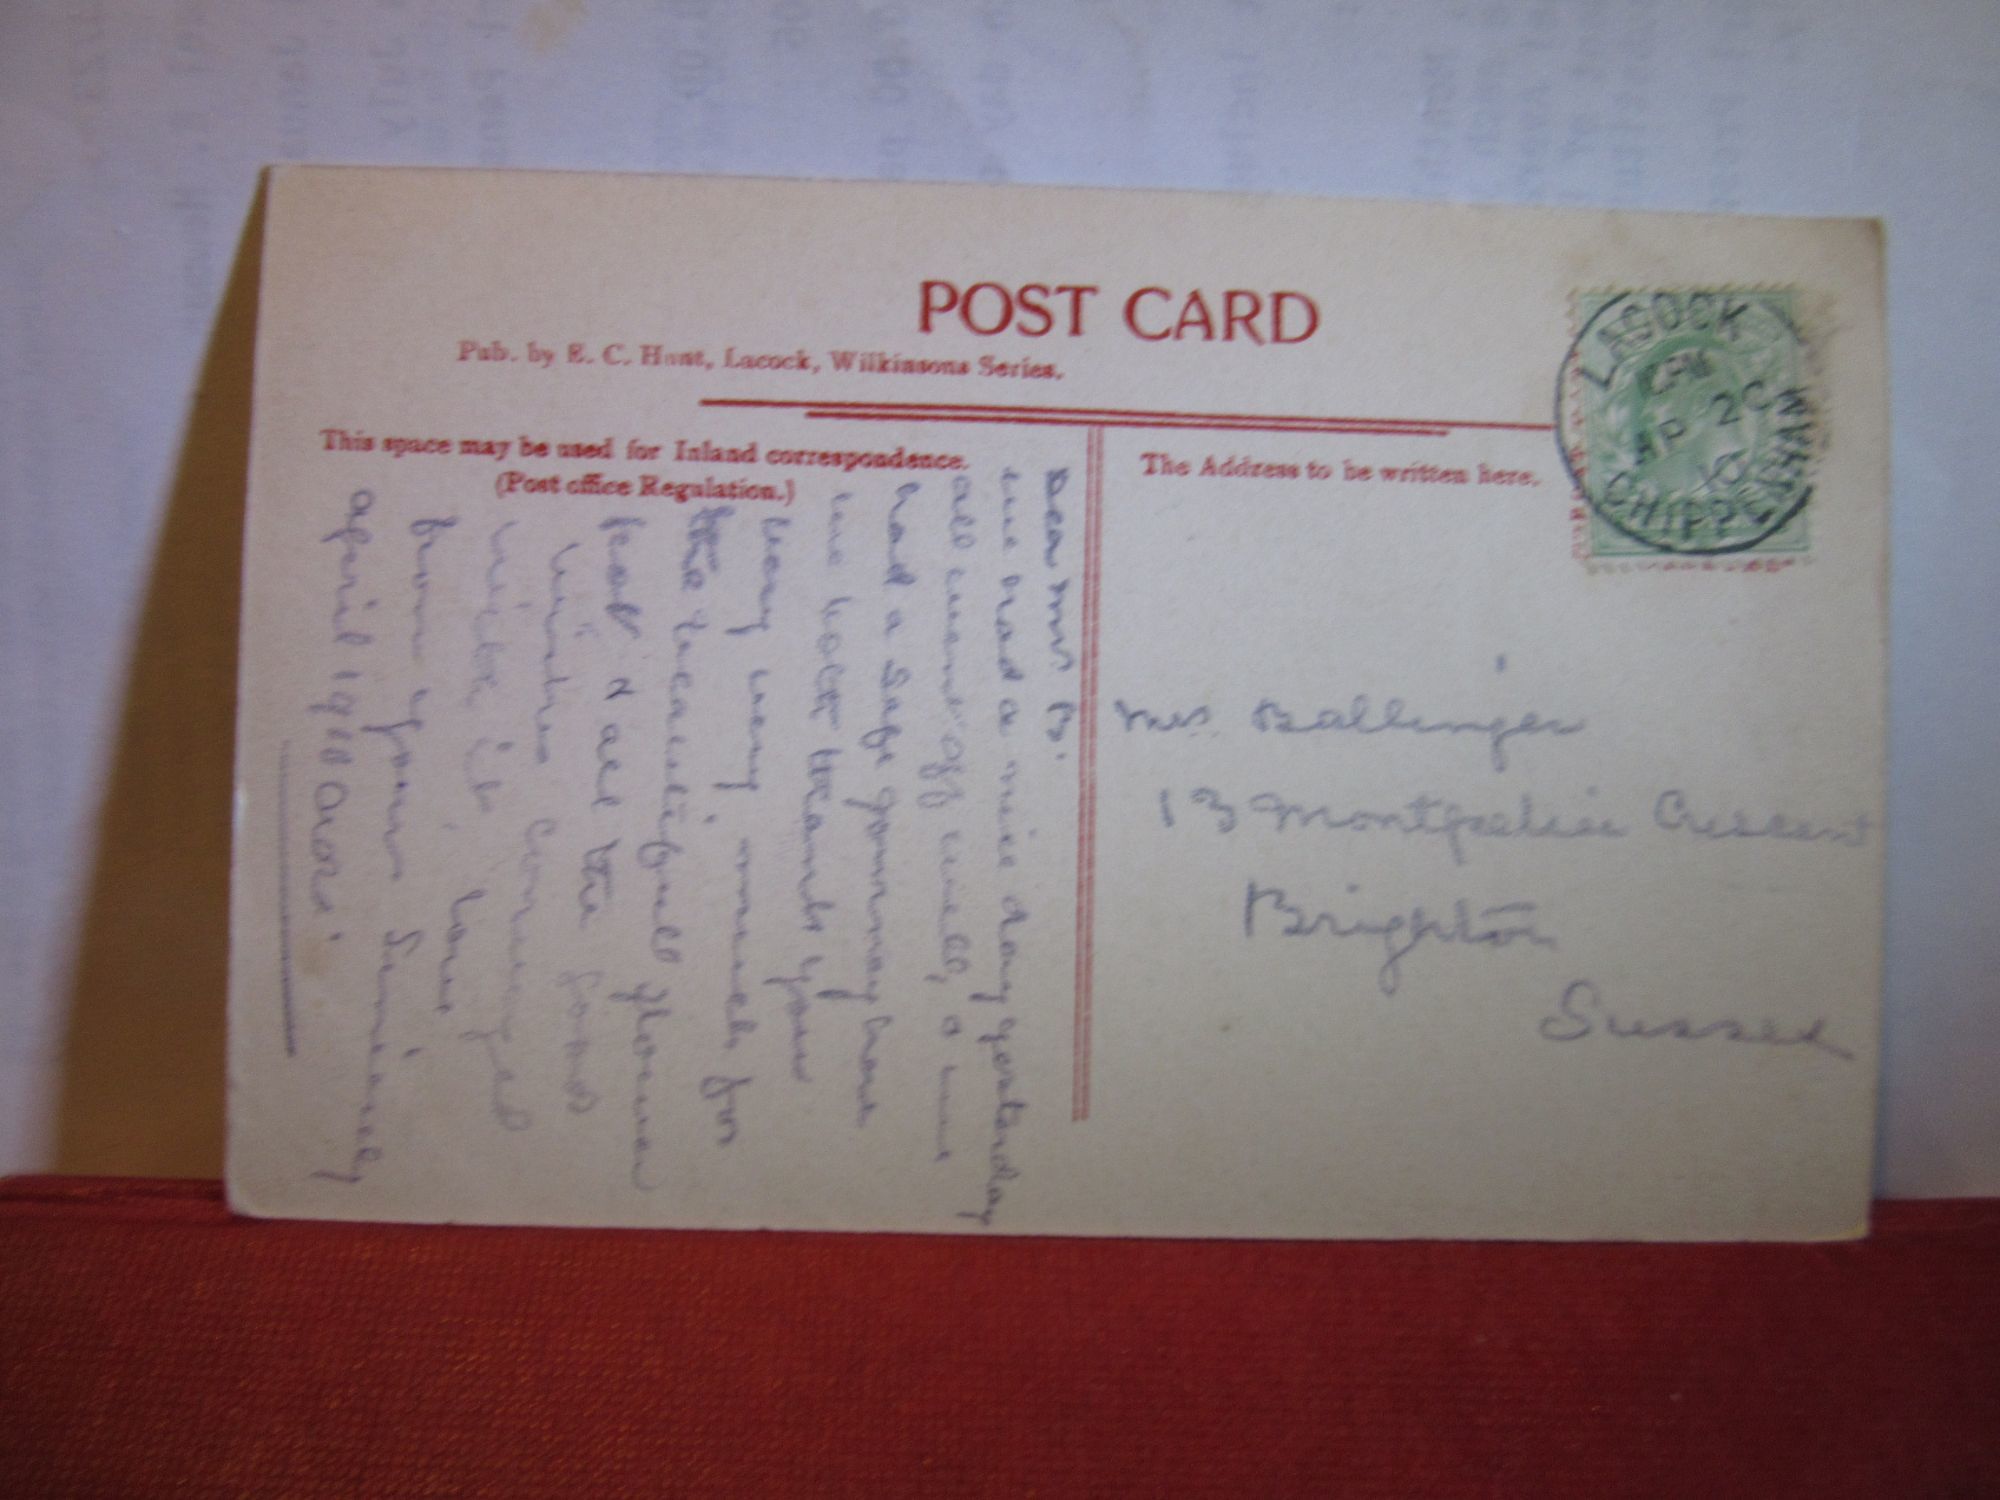 POST CARD
Pub. by E. C. Hunt, Lacock, Wilkinsons Series.
This space may be used for Inland correspondence.
(Post office Regulation.)
The Address to be written here.
LACOCK
AP 2
10
CHIPPENHAM
Mrs. Ballinger
13 Montpelier Crescent
Brighton
Sussex
Dear Mrs B.
we had a nice day yesterday
all went off well, &
had a safe journney home
we both thank you
very very much for
the beautifull
& all the good
wishes Conveyed
with it, love
from yours Sincerely
april 1910